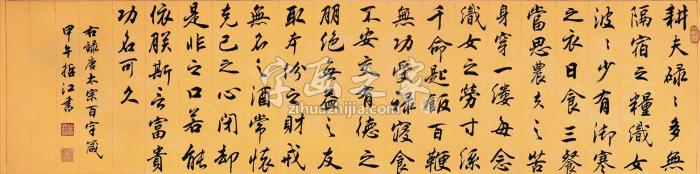 耕夫碌々多無
隔宿之糧織女
波々少有御寒
之衣日食三餐
當思農夫之苦
身穿一縷每念
織女之勞寸絲
千命匙飯百鞭
無功受祿寢食
不安交有德之
朋絕無益之友
取本份之財戒
無名之酒常懷
克己之心閉却
是非之口若能
依朕斯言富貴
功名可久
右錄唐太宗百字箴
甲午江書
字画之家
zihuazhijia.com